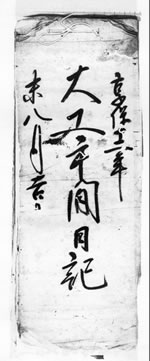 享保十二年
大 間日記
未八月吉日